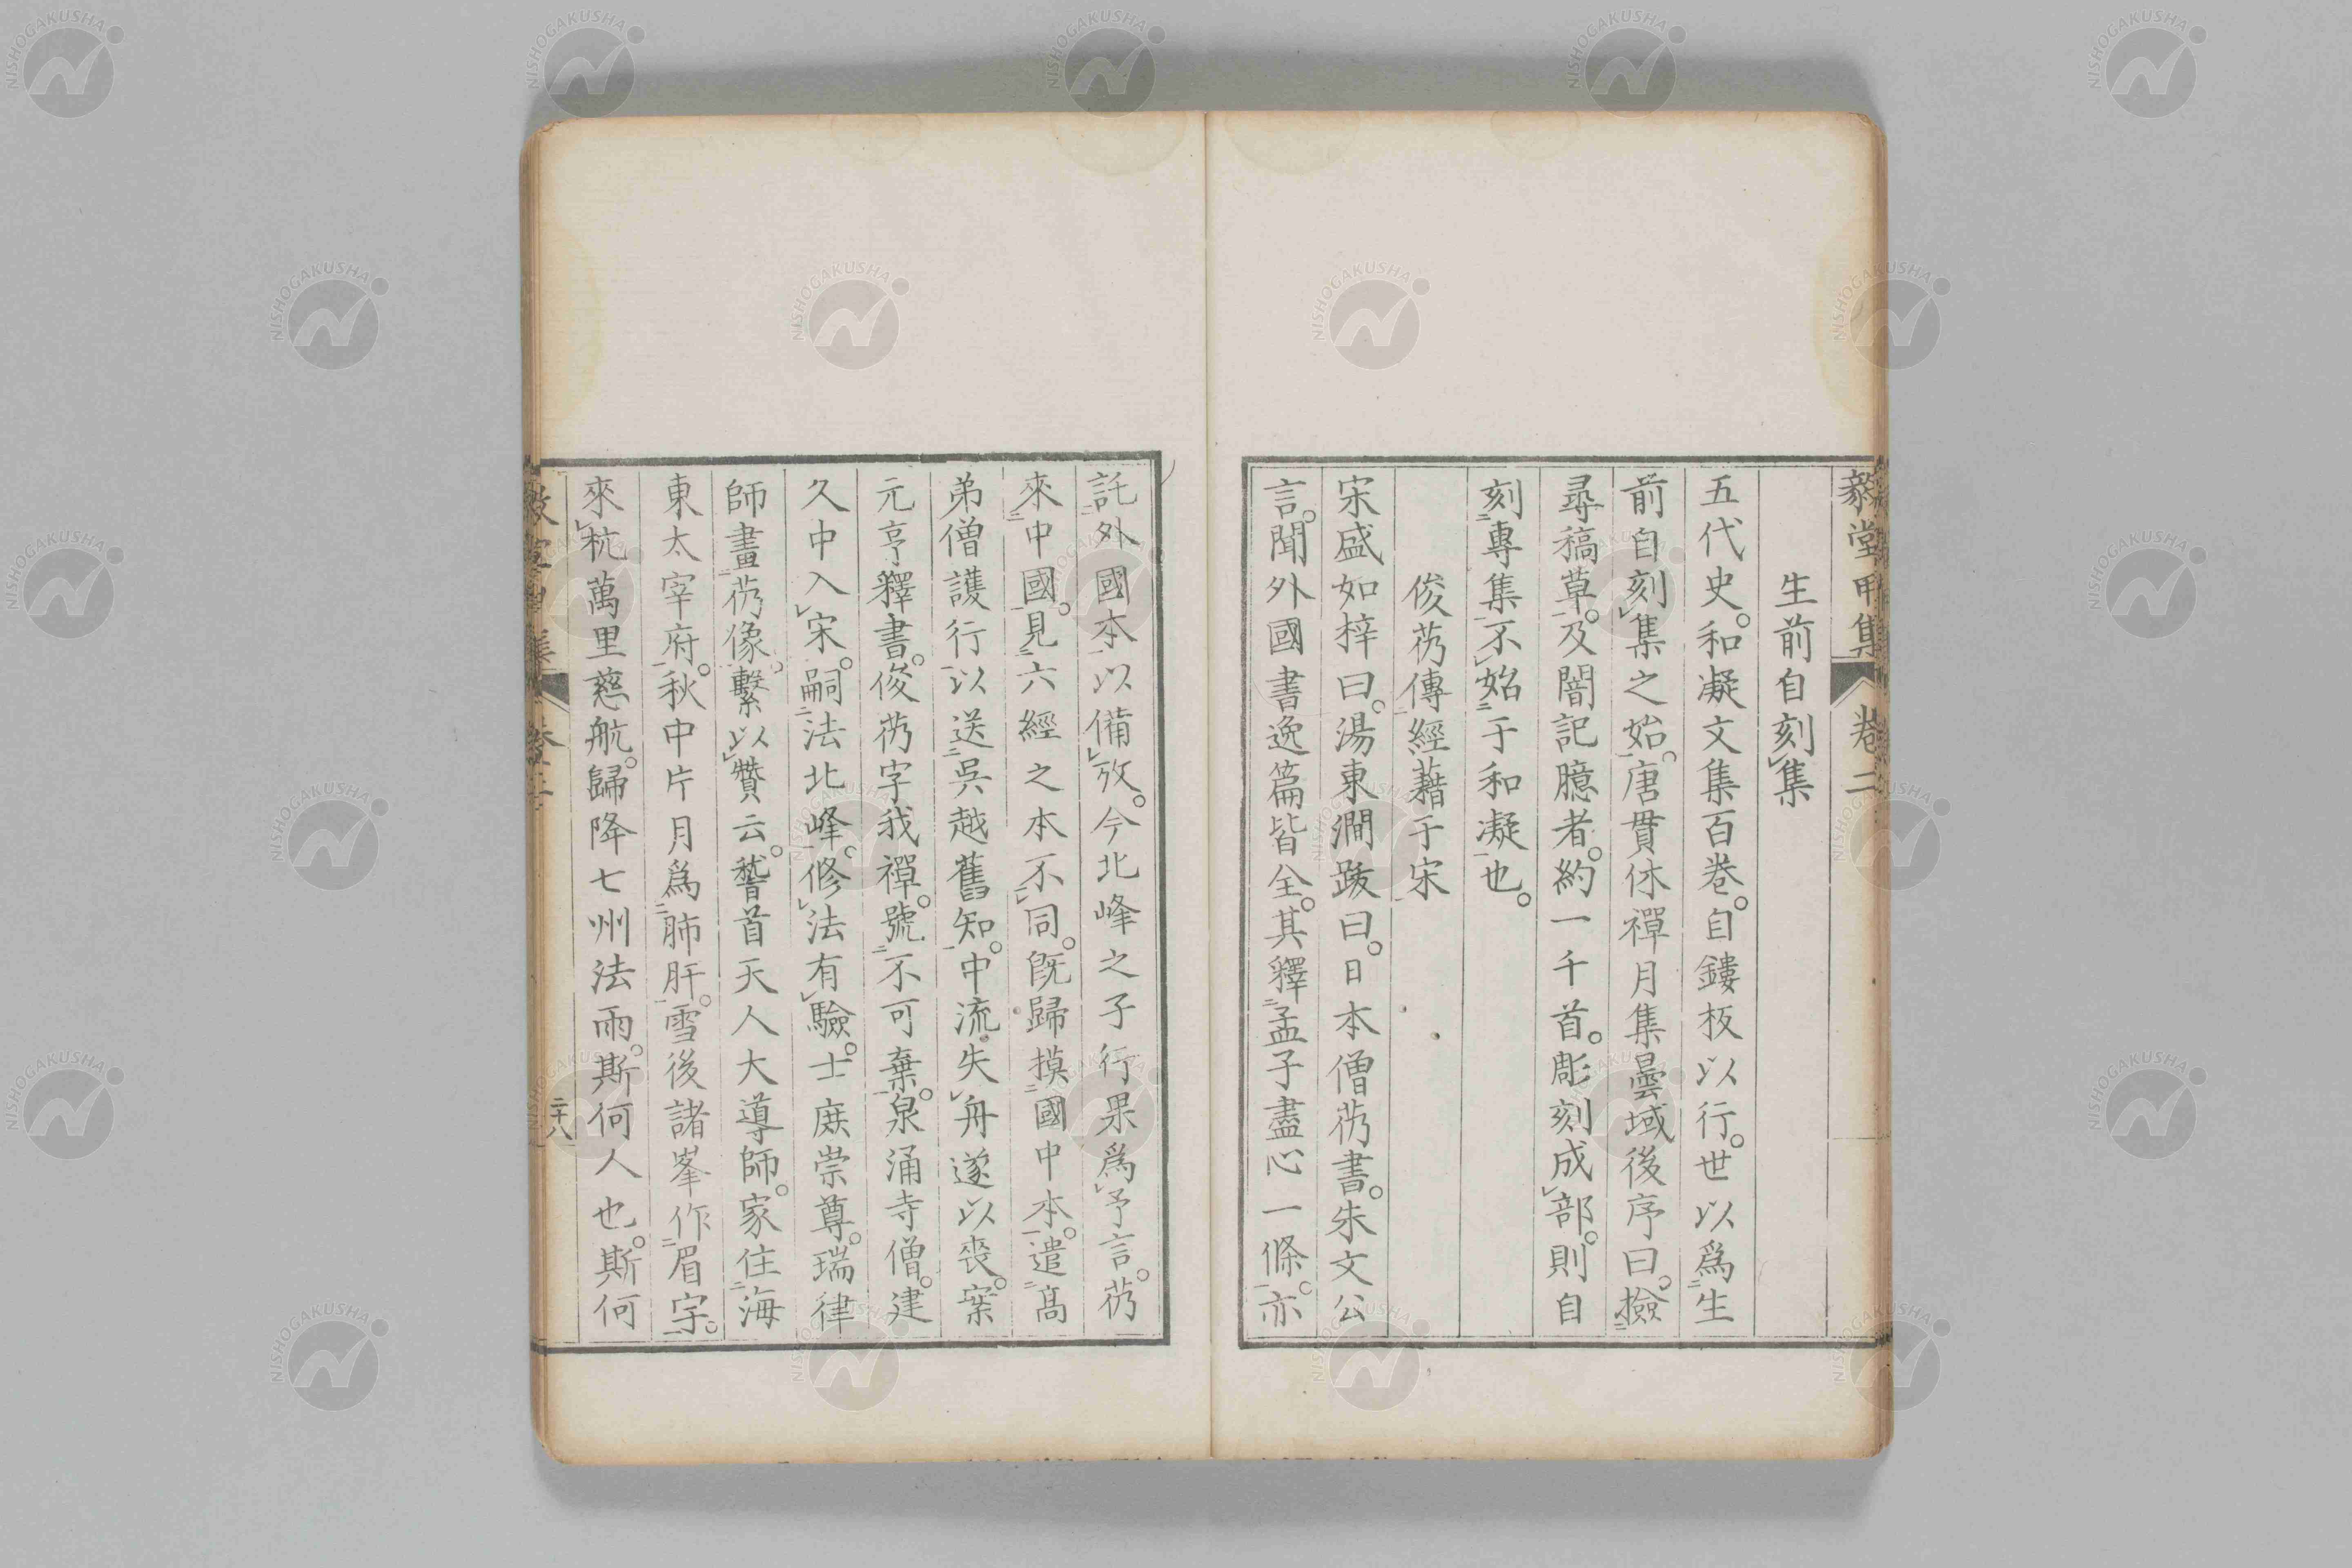 生前自刻集
五代史。和凝文集百卷。自鏤板以行。世以爲生
前自刻集之始。唐貫休禪月集曇域後序曰。撿
尋稿草。及闇記臆者。約一千首。彫刻成部。則自
刻專集不始于和凝也。
俊芿傳經藉于宋
宋盛如梓曰。湯東澗跋曰。日本僧芿書。朱文公
言。聞外國書逸篇皆全。其釋孟子盡心一條。亦
託外國本以備攷。今北峰之子行果爲予言。芿
來中國。見六經之本不同。旣歸摸國中本。遣高
弟僧護行以送吳越舊知。中流失舟遂以喪。案
元亨釋書。俊芿字我禪。號不可棄。泉涌寺僧。建
久中入宋。嗣法北峰。修法有驗。士庶崇尊。瑞律
師畫芿像。繫以贊云。稽首天人大導師。家住海
東太宰府。秋中片月爲肺肝。雪後諸峯作眉宇。
來杭萬里慈航。歸降七州法雨。斯何人也。斯何
卷二
二十八
NISHOGAKUSHA